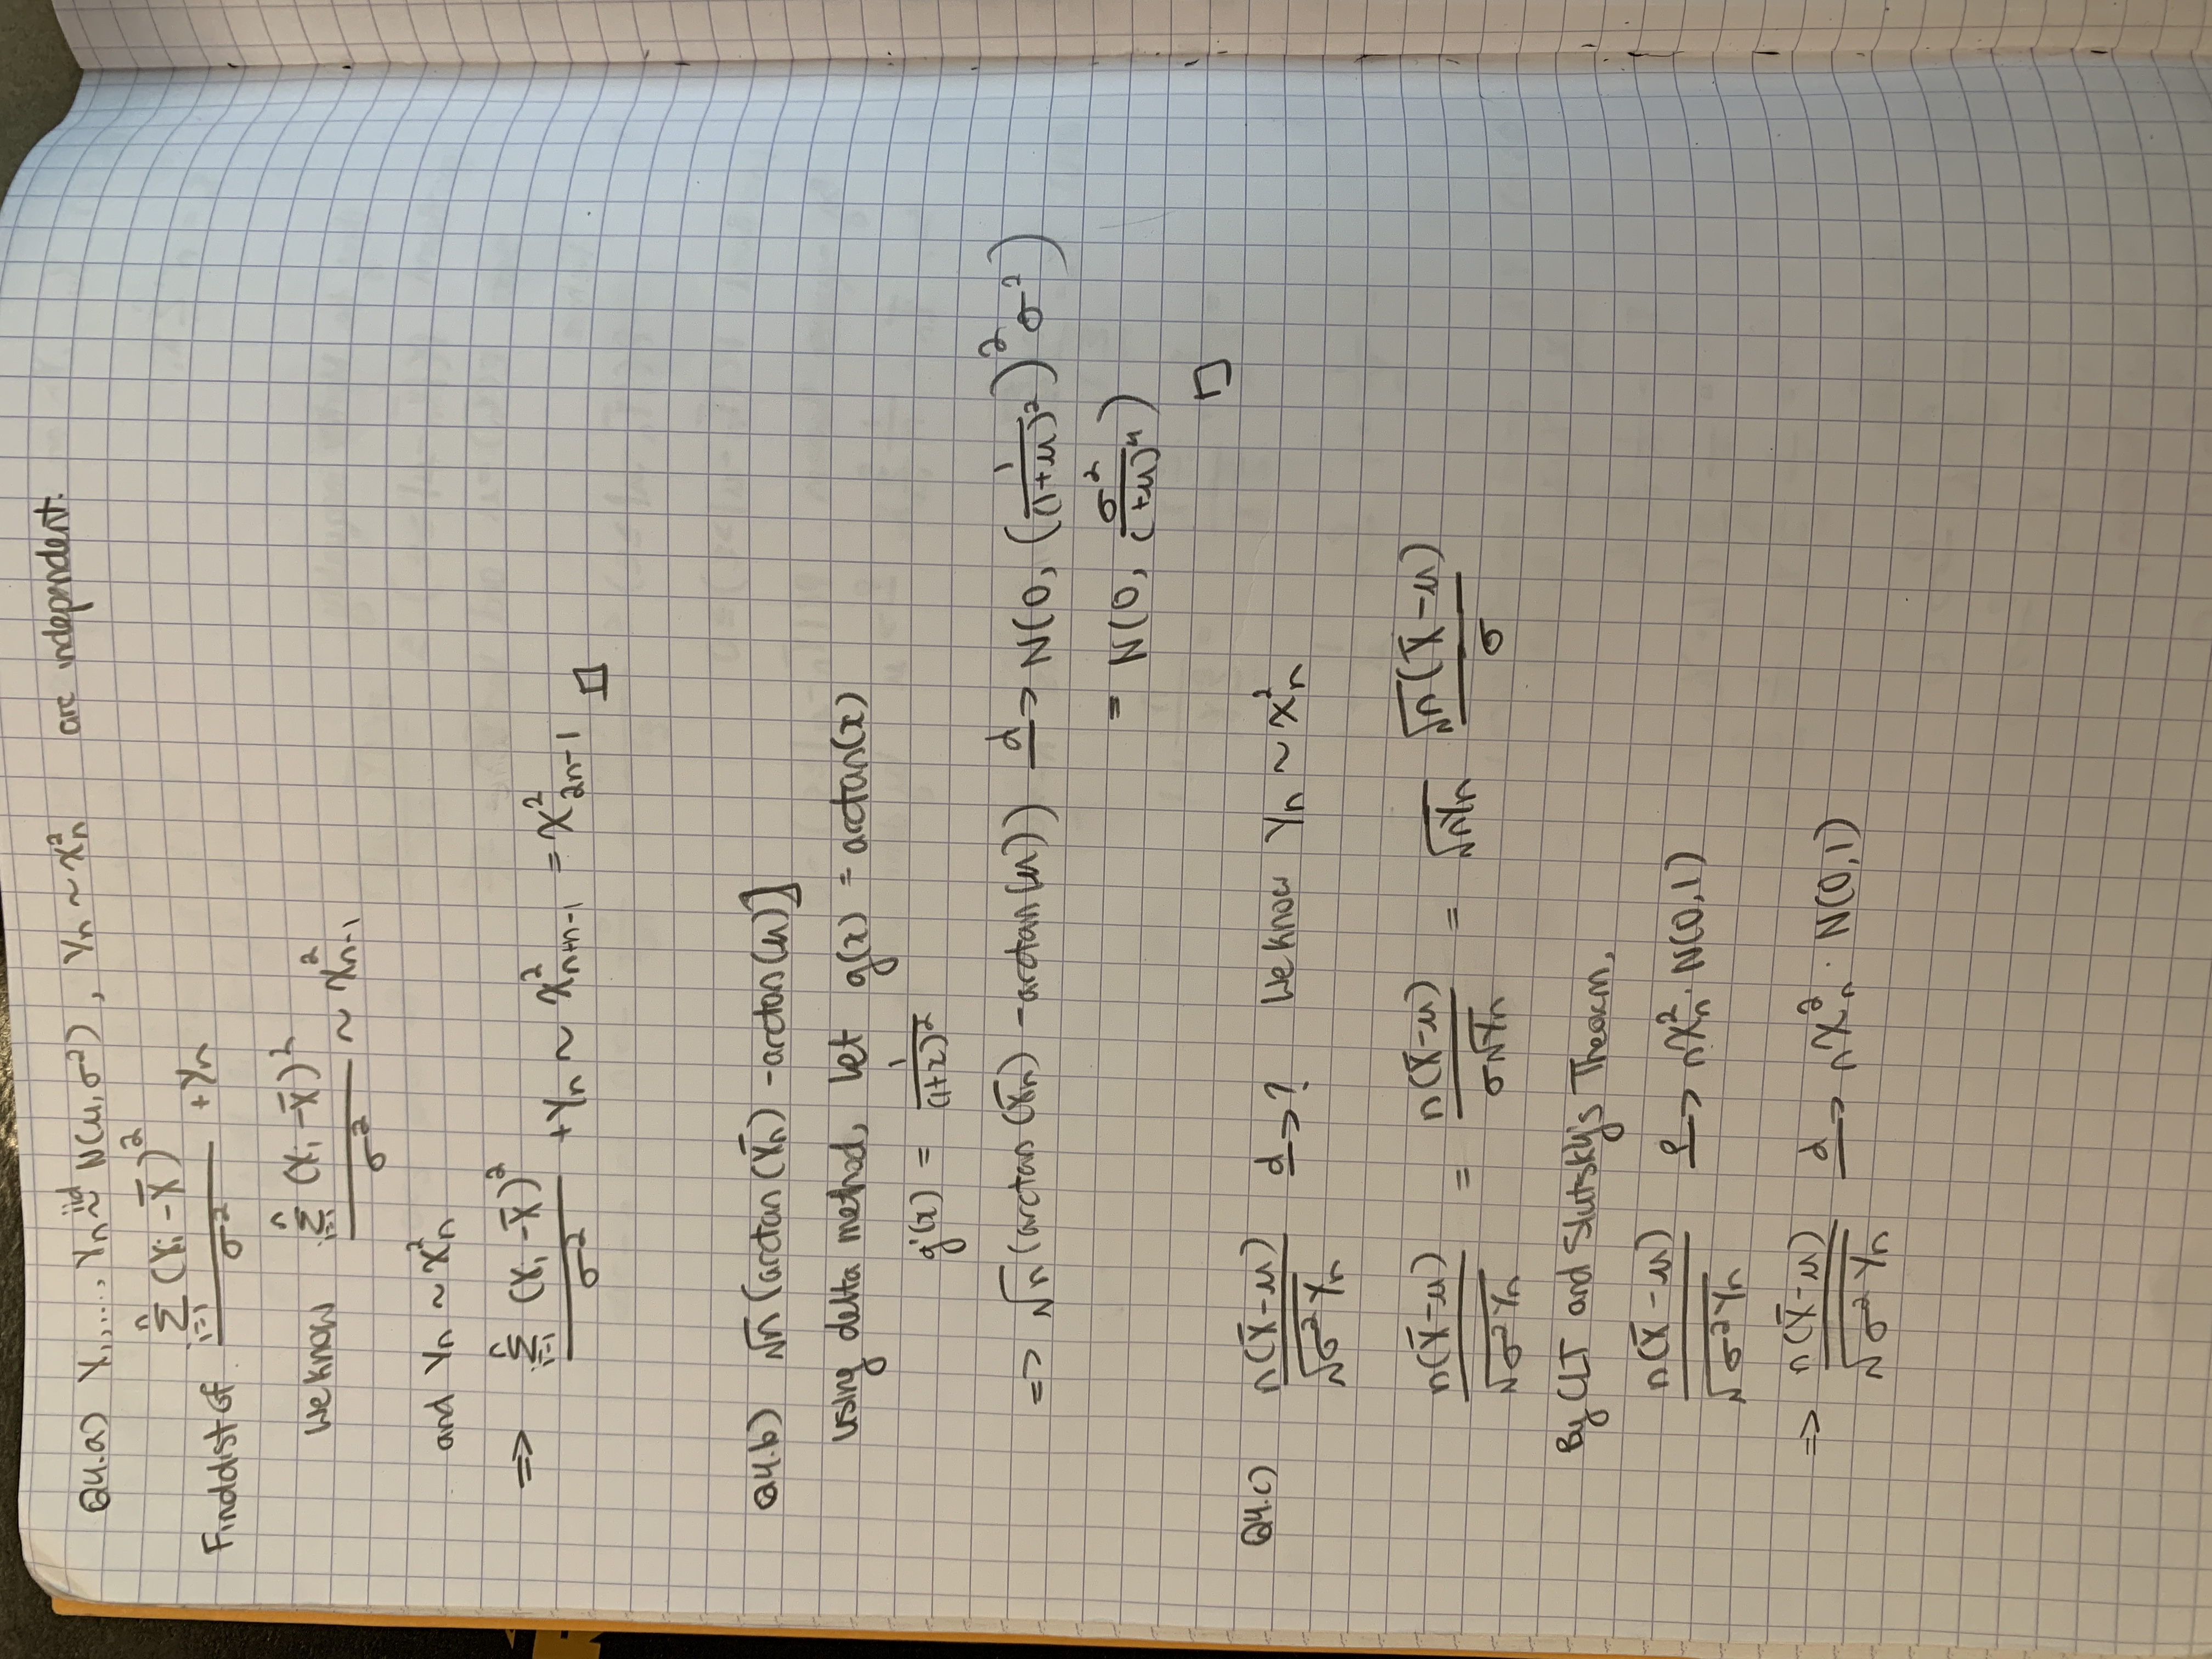 Q4.a) X₁,...., Xₙ iid ~ N(μ, σ²), Yₙ ~ χ²ₙ are independent.
Find dist of Σⁿᵢ₌₁ (Xᵢ - X̄)² / σ² + Yₙ
We know Σⁿᵢ₌₁ (Xᵢ - X̄)² / σ² ~ χ²ₙ₋₁
and Yₙ ~ χ²ₙ
=> Σⁿᵢ₌₁ (Xᵢ - X̄)² / σ² + Yₙ ~ χ²ₙ₊ₙ₋₁ = χ²₂ₙ₋₁ □
Q4.b) √n (arctan(X̄ₙ) - arctan(μ)]
using delta method, let g(x) = arctan(x)
g'(x) = 1 / (1+x)²
=> √n (arctan(X̄ₙ) - arctan(μ)) d→ N(0, (1 / (1+μ)²)² σ²)
= N(0, σ² / (1+μ)⁴)
□
Q4.c) n(X̄-μ) / √(σ² Yₙ) d→ ? We know Yₙ ~ χ²ₙ
n(X̄-μ) / √(σ² Yₙ) = n(X̄-μ) / σ√Yₙ = √(nYₙ) √n (X̄-μ) / σ
By CLT and Slutsky's Theorem,
n(X̄-μ) / √(σ² Yₙ) P→ nχ²ₙ · N(0,1)
=> n(X̄-μ) / √(σ² Yₙ) d→ nχ²ₙ · N(0,1)